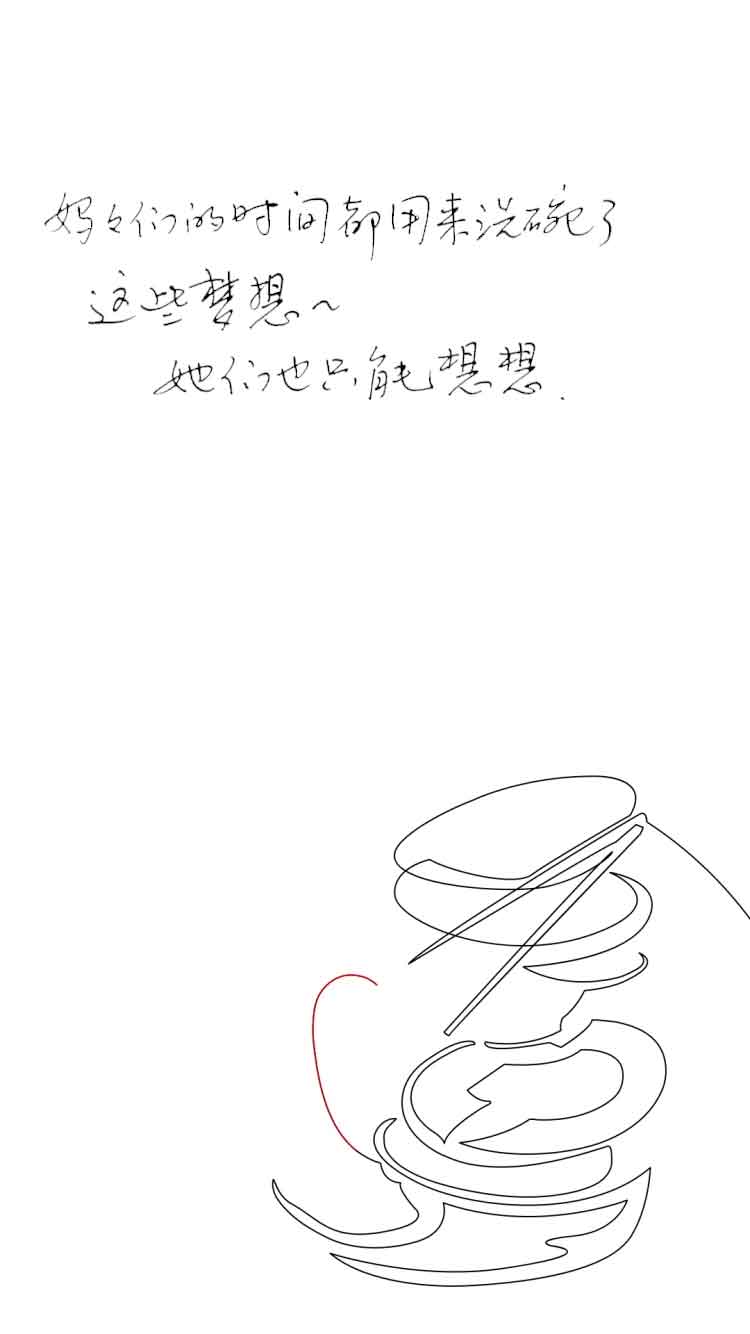 妈々们的时间都用来洗碗了
这些梦想~
她们也只能想想.